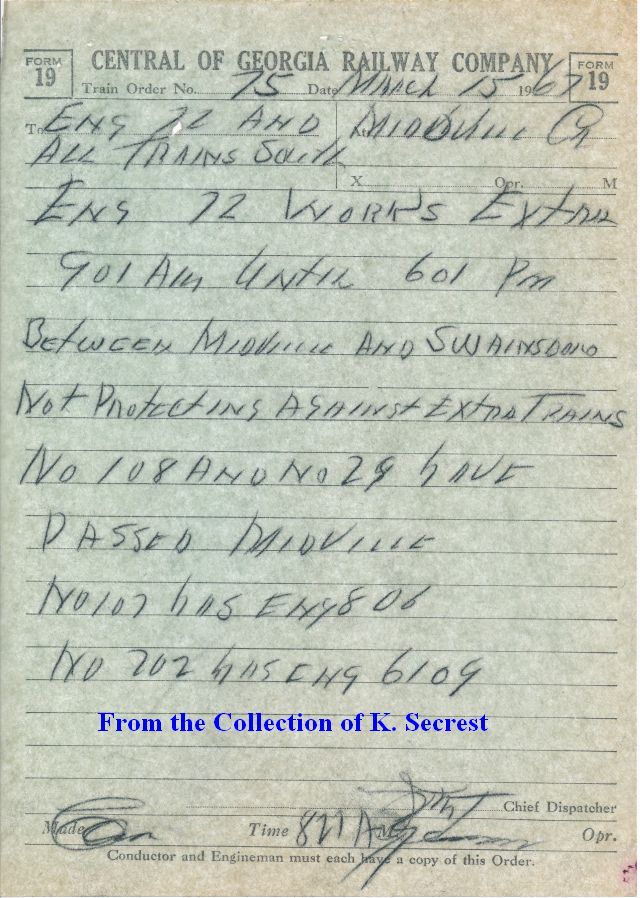 FORM 19 CENTRAL OF GEORGIA RAILWAY COMPANY FORM 19
Train Order No. 75 Date March 15 1967
To Eng 72 AND At Midville Ga
All Trains South
X Opr. M
Eng 72 Works Extra
901 Am Until 601 Pm
Between Midville AND Swainsboro
Not Protecting Against Extra Trains
No 108 AND No 29 have
Passed Midville
No 107 has Eng 806
No 202 has Eng 6109
From the Collection of K. Secrest
Chief Dispatcher
Made Time A M Opr.
Conductor and Engineman must each have a copy of this Order.